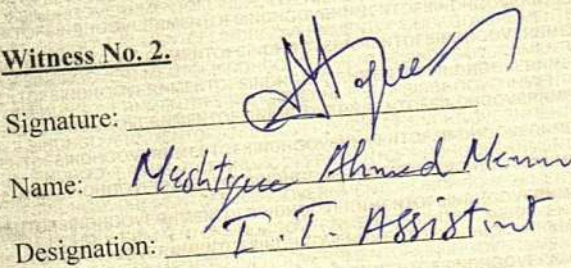 Witness No. 2.
Signature:
Name: Mushtque Ahmed Memon
Designation: I.T. Assistint